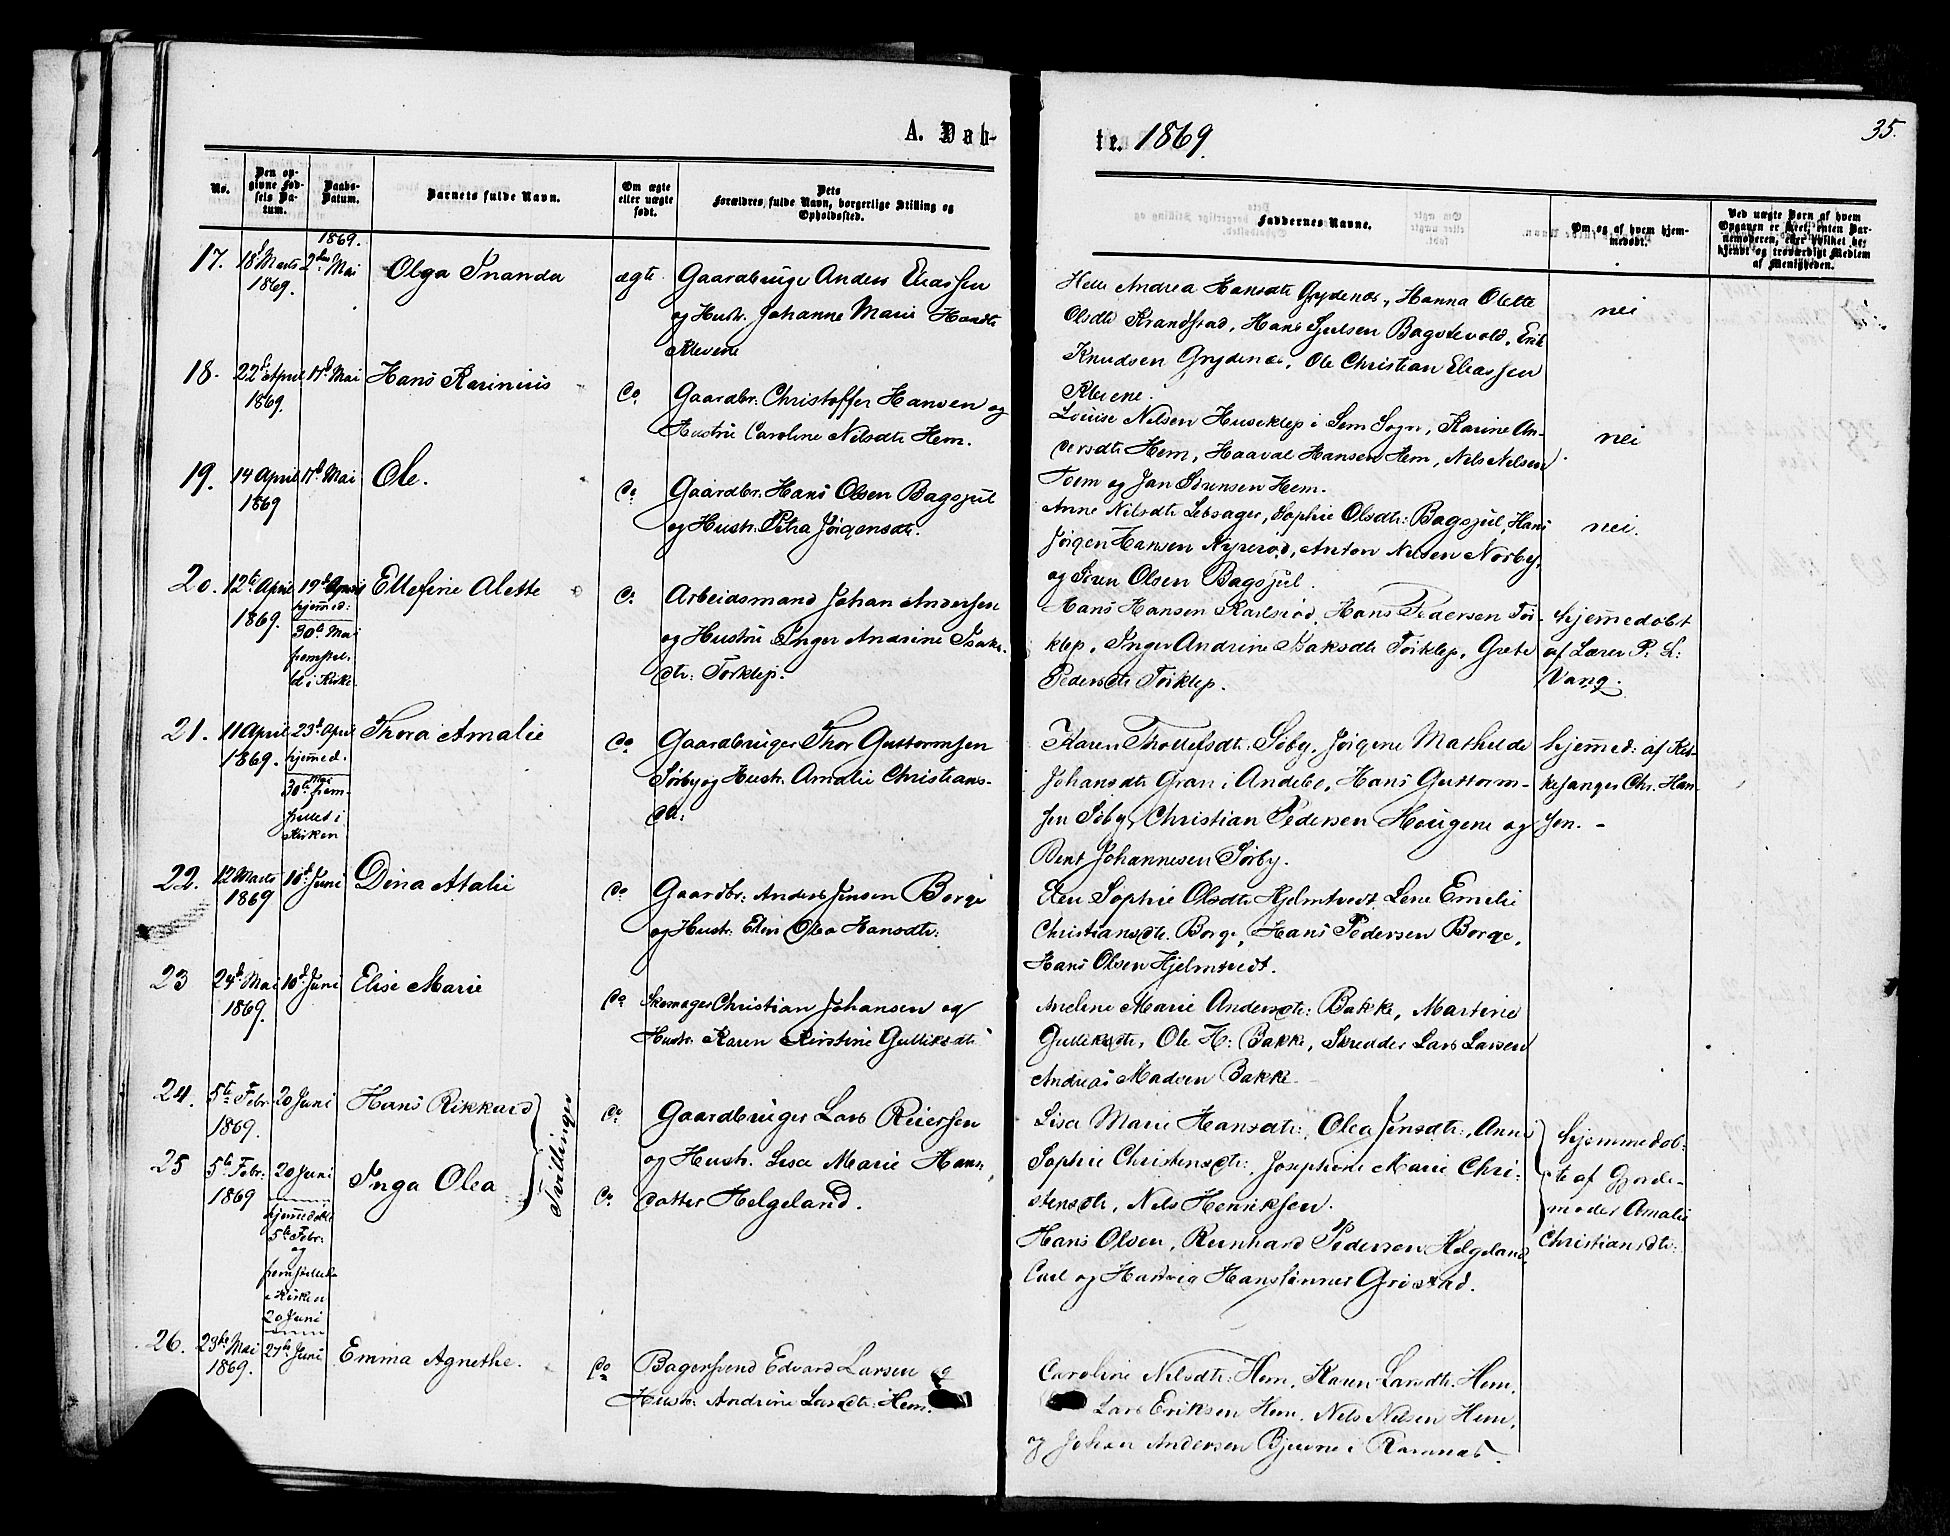 A. Døb-
te. 1869.
35.
No.
Den op-
givne Fød-
sels Da-
tum.
Daabs-
Datum.
Barnets fulde Navn.
Om ægte
eller uægte
født.
Dets
Forældres fulde Navn, borgerlige Stilling og
Opholdssted.
Faddernes Navne.
Om og af hvem hjem-
medøbt.
Ved uægte Børn af hvem
Opgaven er skeet, enten Bar-
nemoderen, eller hvilket be-
kjendt og troværdigt Medlem
af Menigheden.
1869.
17. 18d Marts
1869.
2den Mai
Olga Inanda
ægte
Gaardbruger Anders Eliassen
og Hustr. Johanne Marie Hansdtr
Klevene
Helle Andrea Hansdtr Grydenæs, Hanna Olette
Olsdtr Strandstad, Hans Julsen Bagstevold, Erik
Knudsen Grydenæs, Ole Christian Eliassen
Klevene.
nei
18. 22d April
1869.
17d Mai
Hans Karinius
do
Gaardbr: Christoffer Hansen og
Hustru Caroline Nilsdtr Hem.
Louise Nilsen Huseklep i Sem Sogn, Karine An-
dersdtr Hem, Haaval Hansen Hem, Nils Nilsen
Toem og Jan Sørensen Hem.
nei
19. 14 April
1869
17d Mai
Ole.
do
Gaardbr: Hans Olsen Bagsjul
og Hustr: Petra Jørgensdtr.
Anne Nilsdtr Lebsager, Sophie Olsdtr: Bagsjul, Hans
Jørgen Hansen Nyrerød, Anton Nilsen Nørby,
og Søren Olsen Bagsjul.
nei.
20. 12te April
1869.
19d April
hjemmed:
30te Mai
fremstel-
let i Kirke.
Ellefine Alette
do
Arbeidsmand Johan Andersen
og Hustru Inger Andrine Isaks-
dtr: Torklep.
Hans Hansen Karlsrød, Hans Pedersen Tor-
klep, Inger Andrine Isaksdtr Torklep, Grete
Pedersdtr Torklep.
hjemmedøbt
af Lærer P. L:
Vang.
21. 11 April
1869.
23d April
hjemmed.
30te Mai
frem-
stillet i
Kirken
Thora Amalie
do
Gaardbruger Thor Guttormsen
Sørby og Hustr. Amalie Christians-
dtr.
Karen Thollefsdtr. Søby, Jørgine Mathilde
Johansdtr Gran i Andebo, Hans Guttorm-
sen Søby, Christian Pedersen Hougene og
Bent Johannesen Sørby.
hjemmed: af Kir-
kesanger Chr. Han-
sen. -
22. 12 Marts
1869
10d Juni
Dina Atalie
do
Gaardbr: Anders Jensen Borge
og Hustr: Elen Olea Hansdtr:
Elen Sophie Olsdtr. Hjelmtvedt, Lene Emilie
Christiansdtr. Borge, Hans Pedersen Borge,
Hans Olsen Hjelmtvedt.
23 24d Mai
1869.
10d Juni
Elise Marie
do
Skomager Christian Johansen og
Hustr: Karen Kirstine Gulliksdtr
Aneline Marie Andersdtr: Bakke, Martine
Gulliksdtr, Ole H: Bakke, Skredder Lars Larsen
Andreas Madsen Bakke.
24. 5te Febr
1869.
20 Juni
Hans Rikkard
Tvillinger
do
Gaardbruger Lars Reiersen
og Hustr. Lisa Marie Hans-
datter Helgeland.
25 5te Febr:
1869
20 Juni
hjemmedøbte
5te Febr:
og
fremstillede
i Kirken
20 Juni
Inga Olea
do
Lisa Marie Hansdtr:, Olea Jensdtr:, Anne
Sophie Christensdtr:, Josephine Marie Chri-
stensdtr, Nils Henriksen.
Hans Olsen, Reinhard Pedersen Helgeland,
Carl og Hartvig Hanssønner Griostad.
hjemmedøb-
te af Gjorde-
moder Amalie
Christiansdtr:
26. 23de Mai
1869.
27de Juni
Emma Agnethe.
do
Bagersvend Edvard Larsen og
Hustr. Andrine Larsdtr: Hem.
Caroline Nilsdtr: Hem, Karen Larsdtr. Hem,
Lars Eriksen Hem, Nils Nilsen Hem,
og Johan Andersen Bjuerne i Ramnæs.